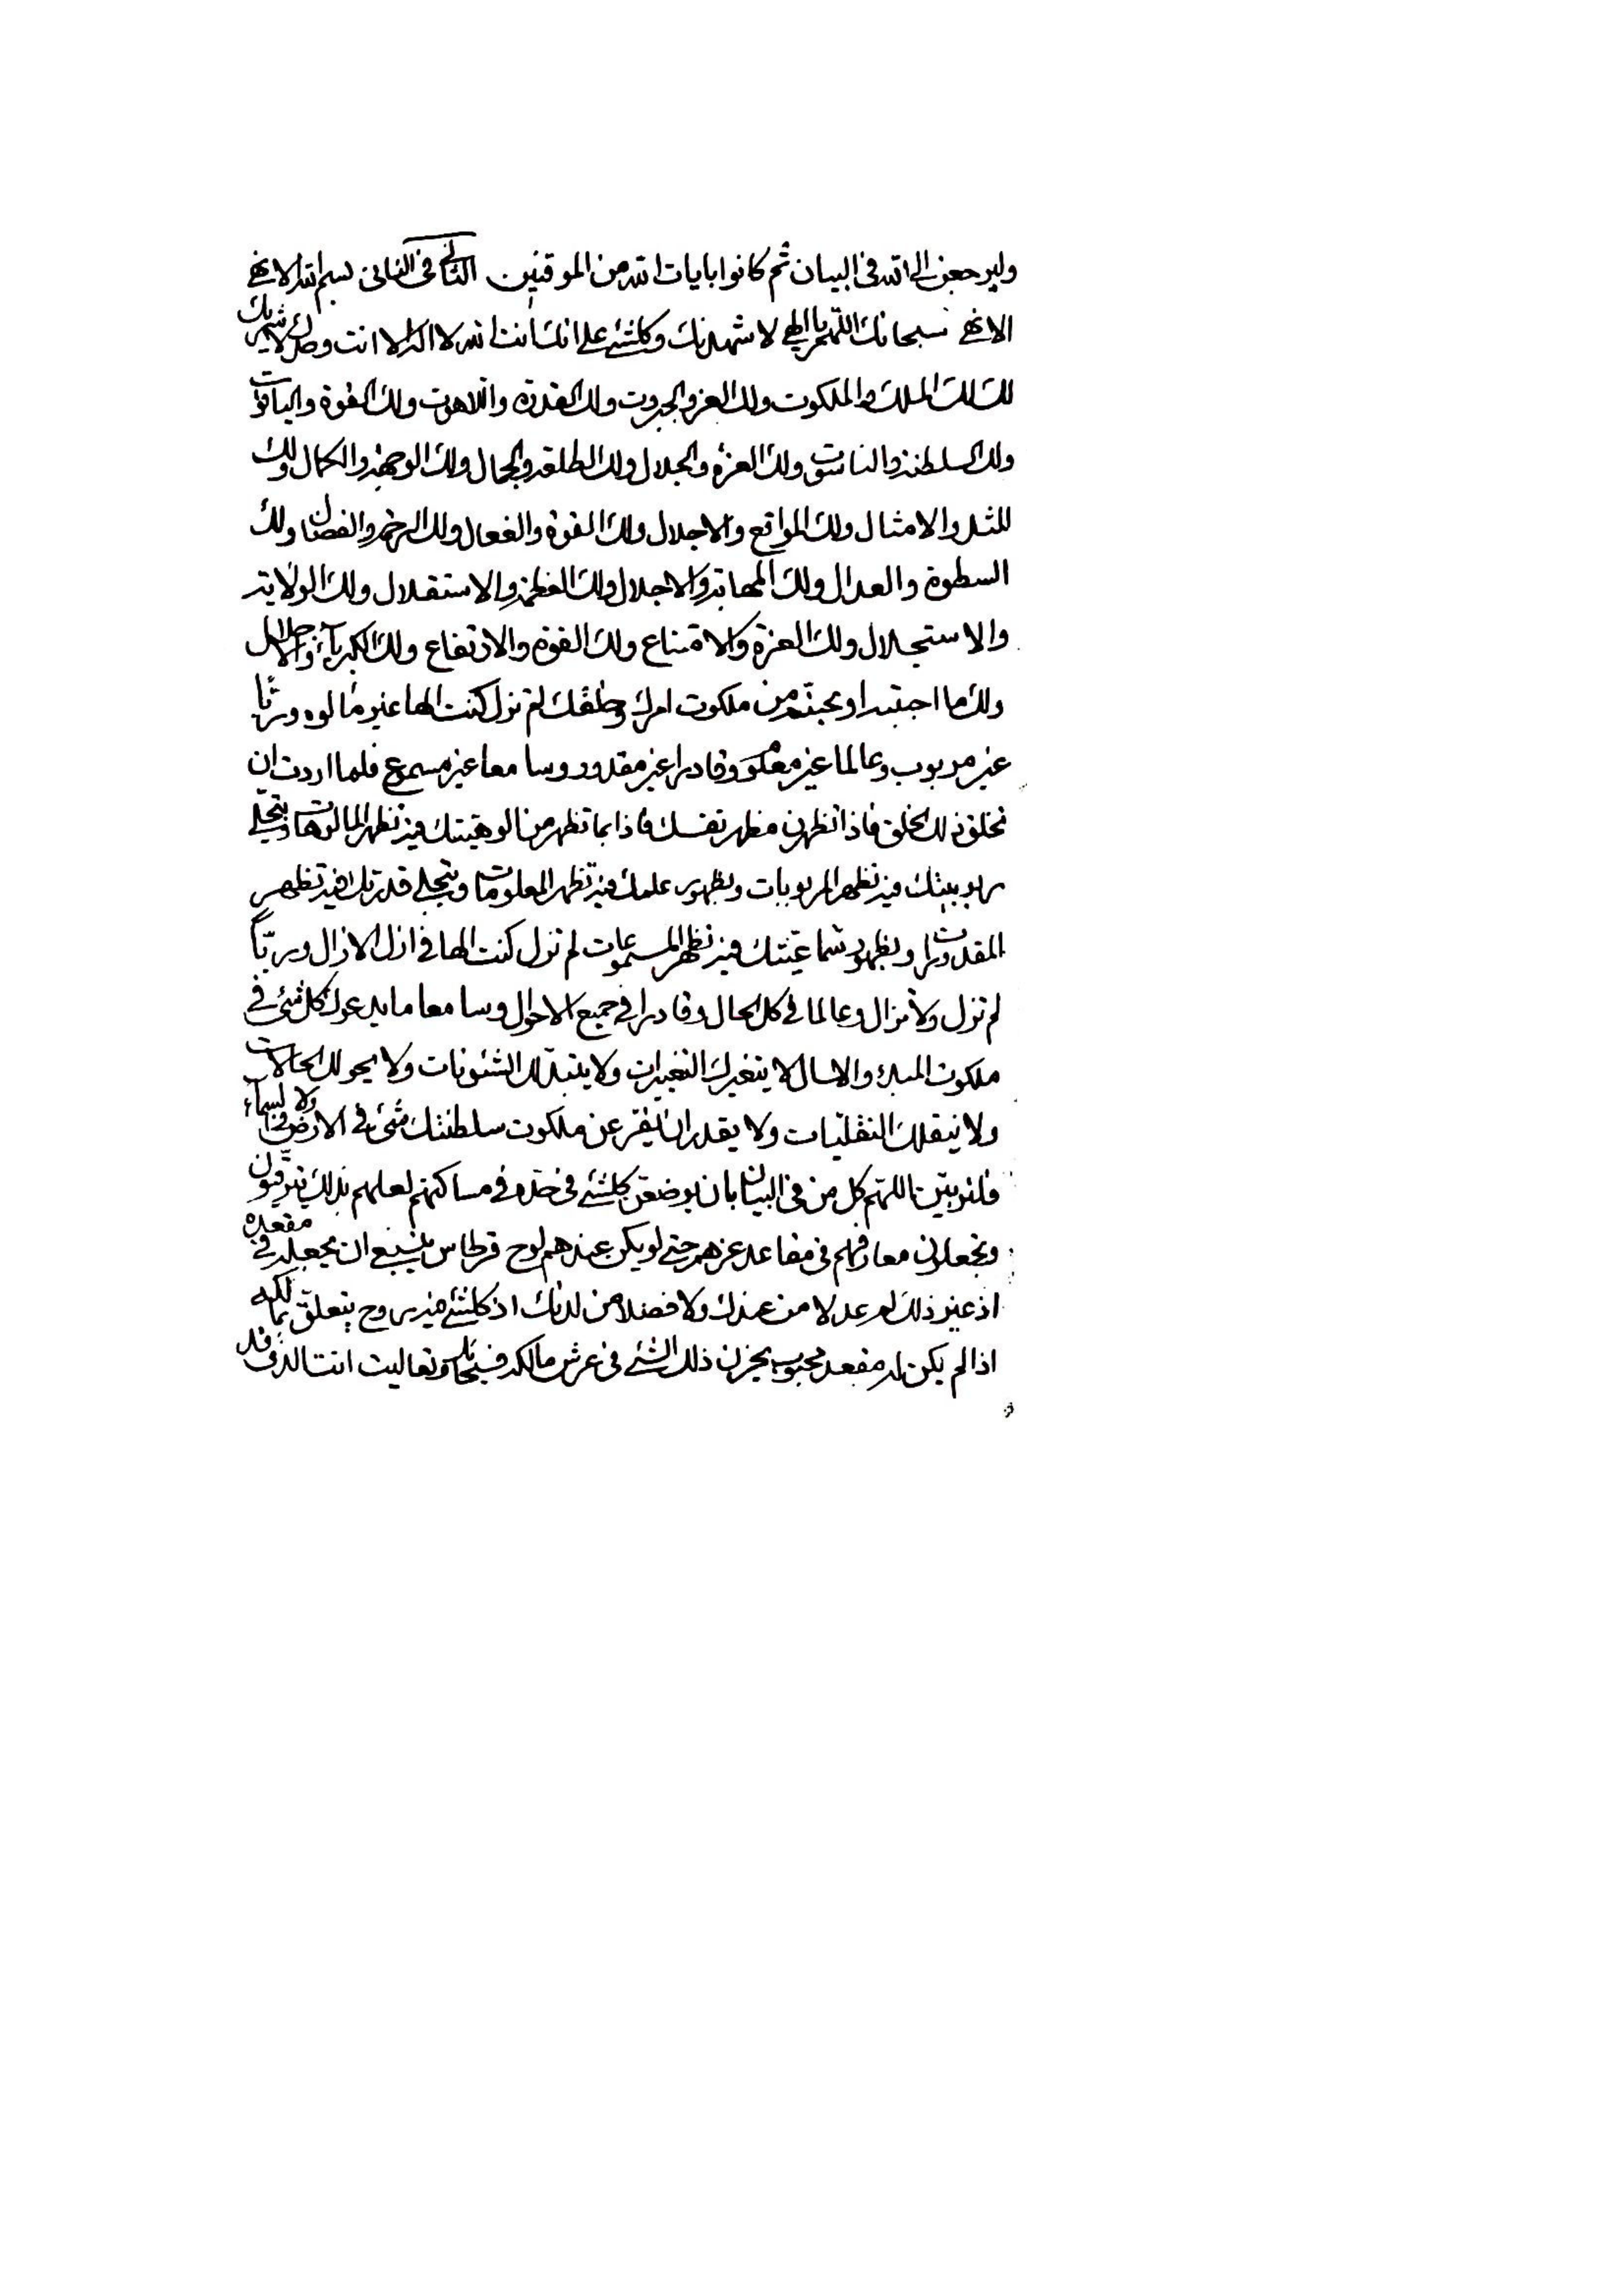 وليرجعن الى الله فى البيان ثم كانوا بايات الله من الموقنين الثانى فى الثانى بسم الله الابهى
الابهى سبحانك اللهم يا الهى لاشهدنك وكلشئ على انك انت الله لا اله الا انت وحدك لا شريك
لك لك الملك والملكوت ولك العز والجبروت ولك القدرة واللاهوت ولك القوة والياقوت
ولك السلطنة والناسوت ولك العزة والجلال ولك الطلعة والجمال ولك الوجهة والكمال ولك
المثل والامثال ولك المواقع والاجلال ولك القوة والفعال ولك الرحمة والفضال ولك
السطوة والعدال ولك المهابة والاجلال ولك العظمة والاستقلال ولك الولاية
والاستجلال ولك العزة والامتناع ولك القوة والارتفاع ولك الكبرياء والاجلال
ولك ما احببته او تحبنه من ملكوت امرك وخلقك لم تزل كنت الها غير مألوه وربا
غير مربوب وعالما غير معلوم وقادرا غير مقدور وسامعا غير مسموع فلما اردت ان
تخلق ذلك الخلق فاذا تظهرن مظهر نفسك فاذا بما تظهر من الوهيتك فيه تظهر المالوهات وبتجلى
ربوبيتك فيه تظهر المربوبات وبظهور علمك فيه تظهر المعلومات وبتجلى قدرتك فيه تظهر
المقدورات وبظهور سماعيتك فيه تظهر المسموعات لم تزل كنت الها فى ازل الازال وربا
لم تزل ولا تزال وعالما فى كل الحال وقادرا فى جميع الاحوال وسامعا ما يدعوك كل شئ فى
ملكوت المبدء والا لا يتغيرك التغيرات ولا يتبدلك الشئونات ولا يحولك الحالات
ولا ينقلك النقليات ولا يقدر ان يفر عن ملكوت سلطنتك شئ فى الارض ولا فى السماء
فلتربين اللهم كل من فى البيان بان يوضعن كلشئ فى حده وفى مساكنهم لعلهم بذلك يترقيون
وتجعلن معارفهم فى مقاعد عزهم حتى لو يكن عندهم لوح قرطاس ينبغى ان يجعله فى مقعده
اذ غير ذلك لم عدلا من عندك ولا فضلا من لدنك اذ كلشئ فيه روح يتعلق بمالكه
اذا لم يكن له مقعد محبوب يحزن ذلك الشئ فى عرش مالكه فسبحانك وتعاليت انت الذى قد